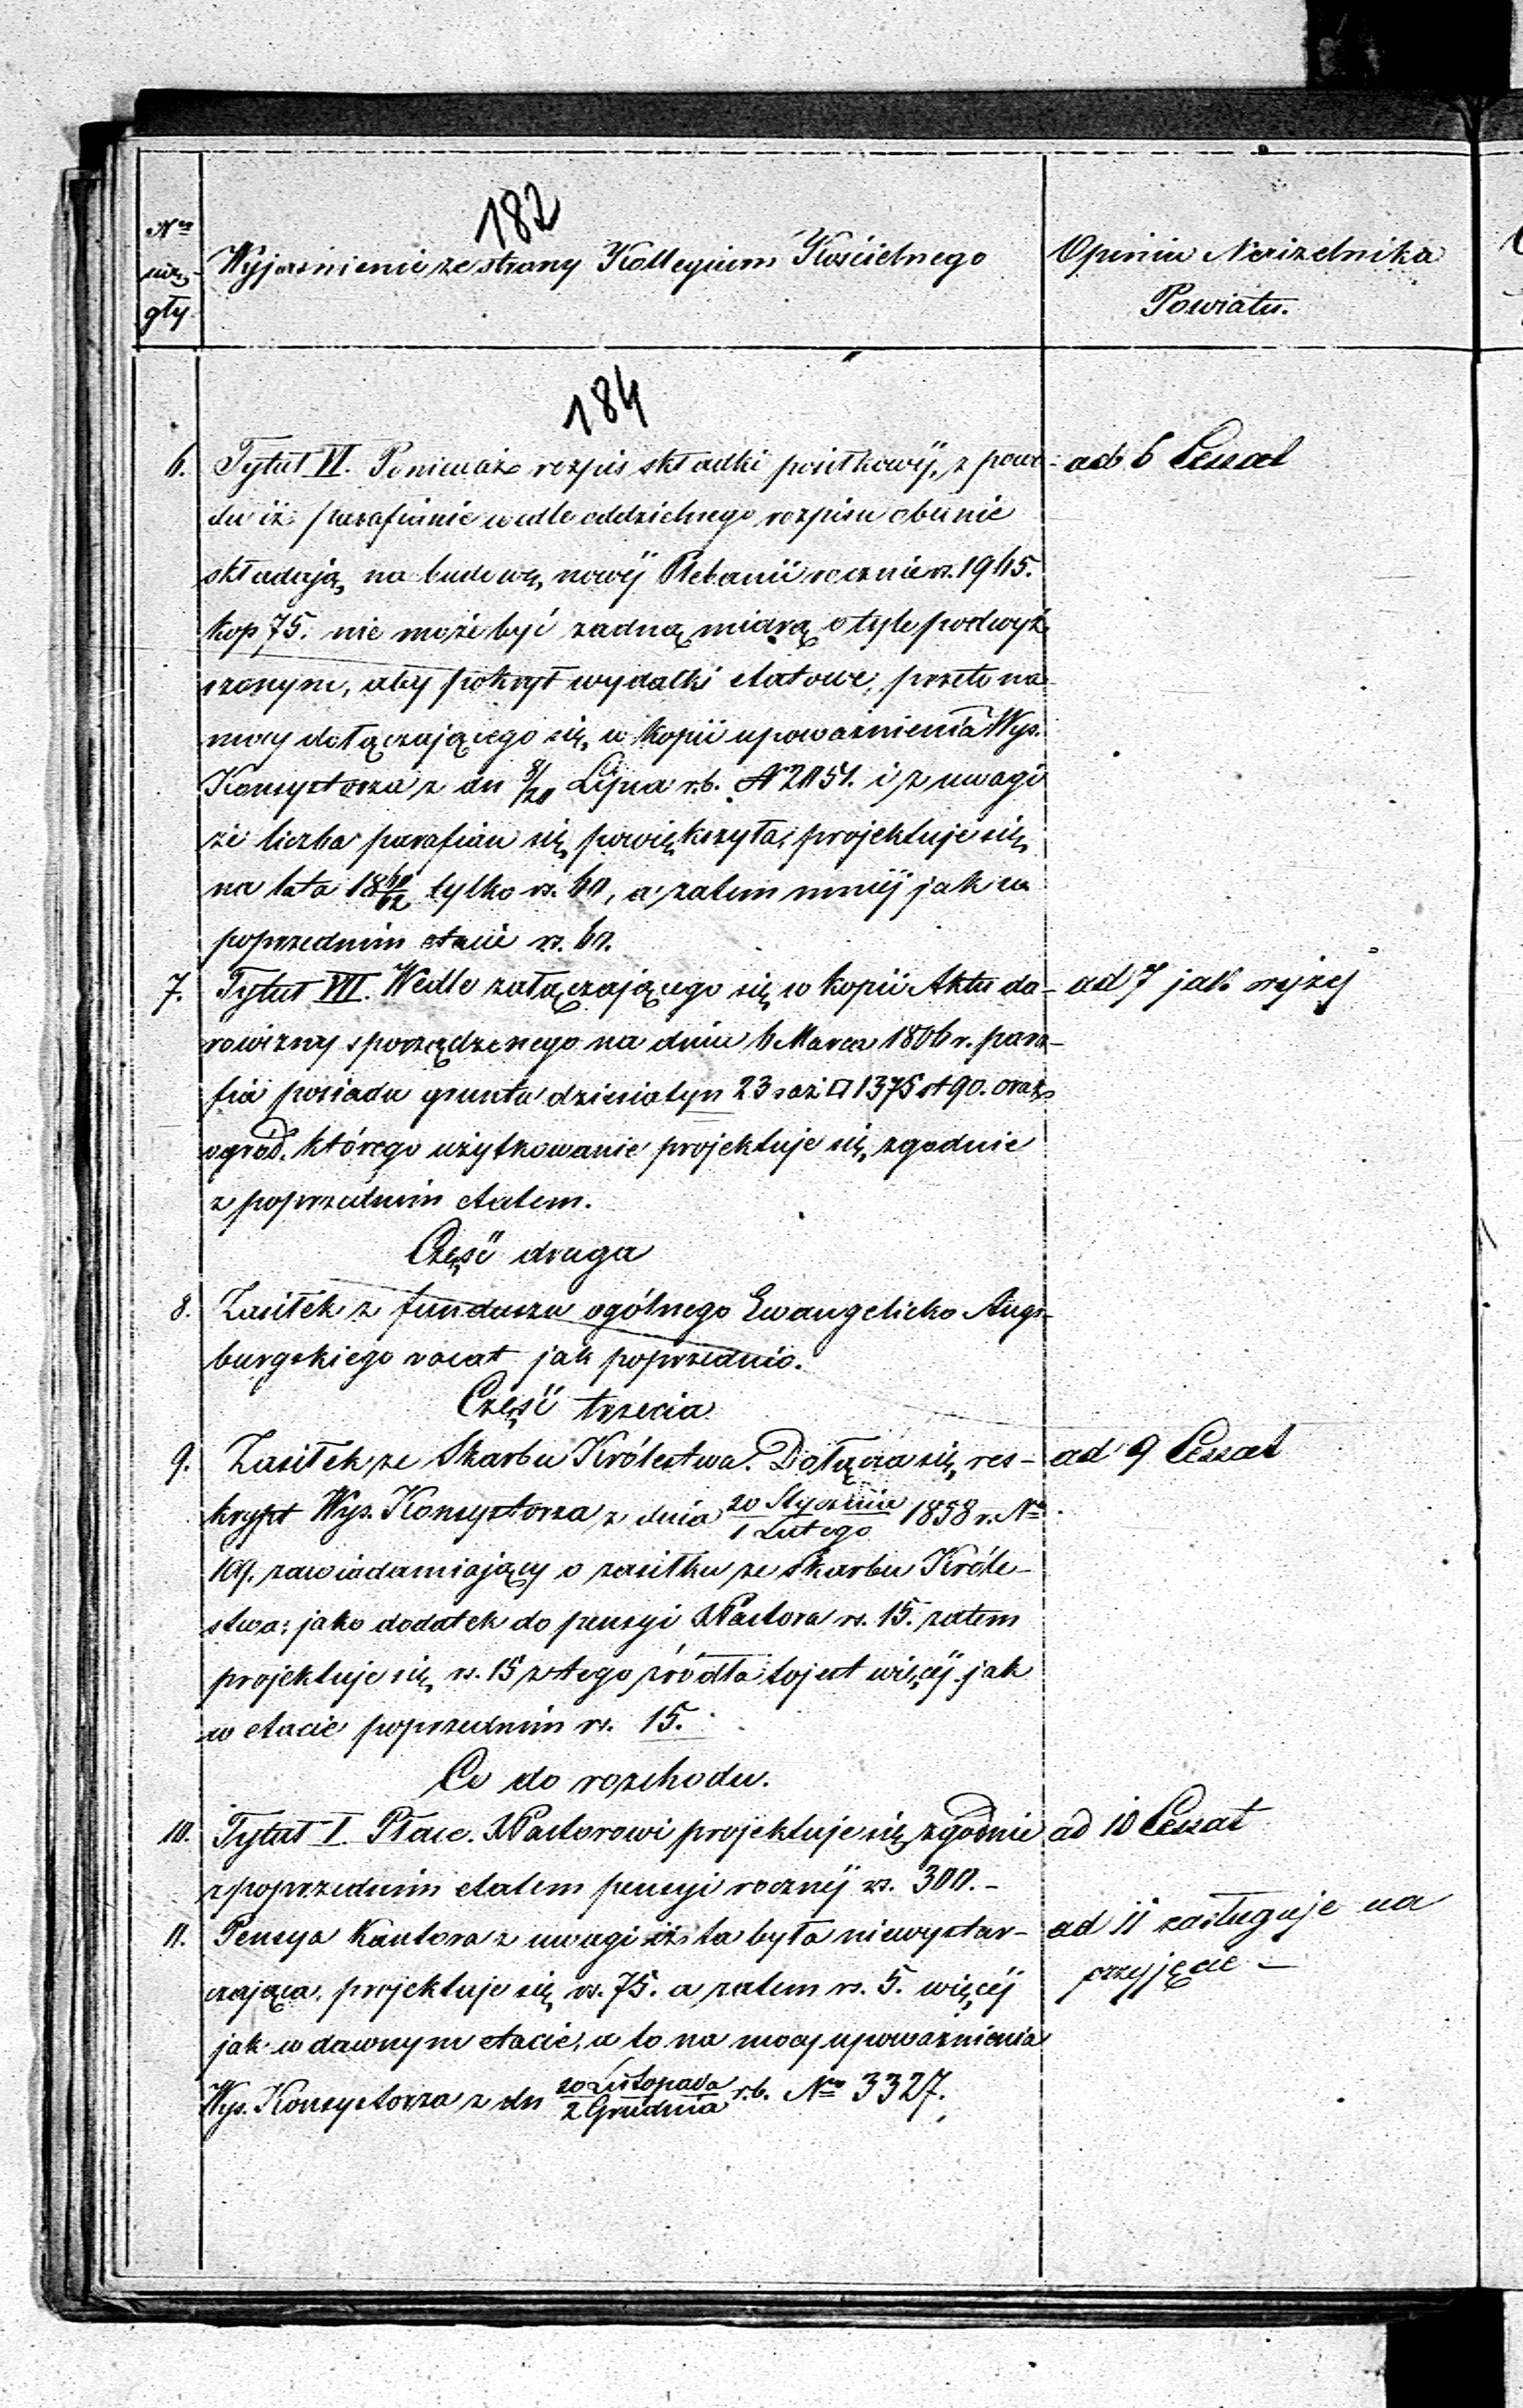 182
Nra
pozy-
gły
Wyjaśnienie ze strony Kollegium Kościelnego
Opinia Naczelnika
Powiatu.
184
6. Tytuł VI. Ponieważ rozpis składki posiłkowéj, z powo-
du iż parafianie wedle oddzielnego rozpisu obecnie
składają na budowę nowéj Plebanii rocznie rs. 1945.
kop 75. nie może być żadną miarą o tyle podwyż-
szonym, aby pokrył wydatki etatowe, przeto na
mocy dołączającego się w kopii upoważnienia Wys.
Konsystorza z dn 8/20 Lipca r.b. N 2051. i z uwagi
że liczba parafian się powiększyła, projektuje się
na lata 18 60/62 tylko rs. 60, a zatem mniéj jak w
poprzednim etacie rs. 60.
ad 6 Cessat
7. Tytuł VII. Wedle załączającego się w kopii Aktu da-
rowizny sporządzonego na dniu 6 Marca 1806 r. para-
fia posiada gruntu dziesiatyn 23 saż □ 1375 st 90. oraz
ogród, którego użytkowanie projektuje się zgodnie
z poprzednim etatem.
ad 7 jak wyżej
Część druga
8. Zasiłek z funduszu ogólnego Ewangelicko Augs-
burgskiego vacat jak poprzednio.
Część trzecia
9. Zasiłek ze Skarbu Królestwa. Dołącza się res-
krypt Wys. Konsystorza z dnia 20 Stycznia/1 Lutego 1858 r. Nr
109. zawiadamiający o zasiłku ze skarbu Króle-
stwa: jako dodatek do pensyi Pastora rs. 15. zatem
projektuje się rs. 15 z tego źródła to jest więcéj jak
w etacie poprzednim rs. 15.
ad 9 Cessat
Co do rozchodu.
10. Tytuł I. Płace. Pastorowi projektuje się zgodnie
z poprzednim etatem pensyi rocznéj rs. 300.-
ad 10 Cessat
11. Pensya Kantora z uwagi iż ta była niewystar-
czająca, projektuje się rs. 75. a zatem rs. 5. więcéj
jak w dawnym etacie, a to na mocy upoważnienia
Wys. Konsystorza z dn 20 Listopada/2 Grudnia r.b. Nro 3327.
ad 11 zasługuje na
przyjęcie -